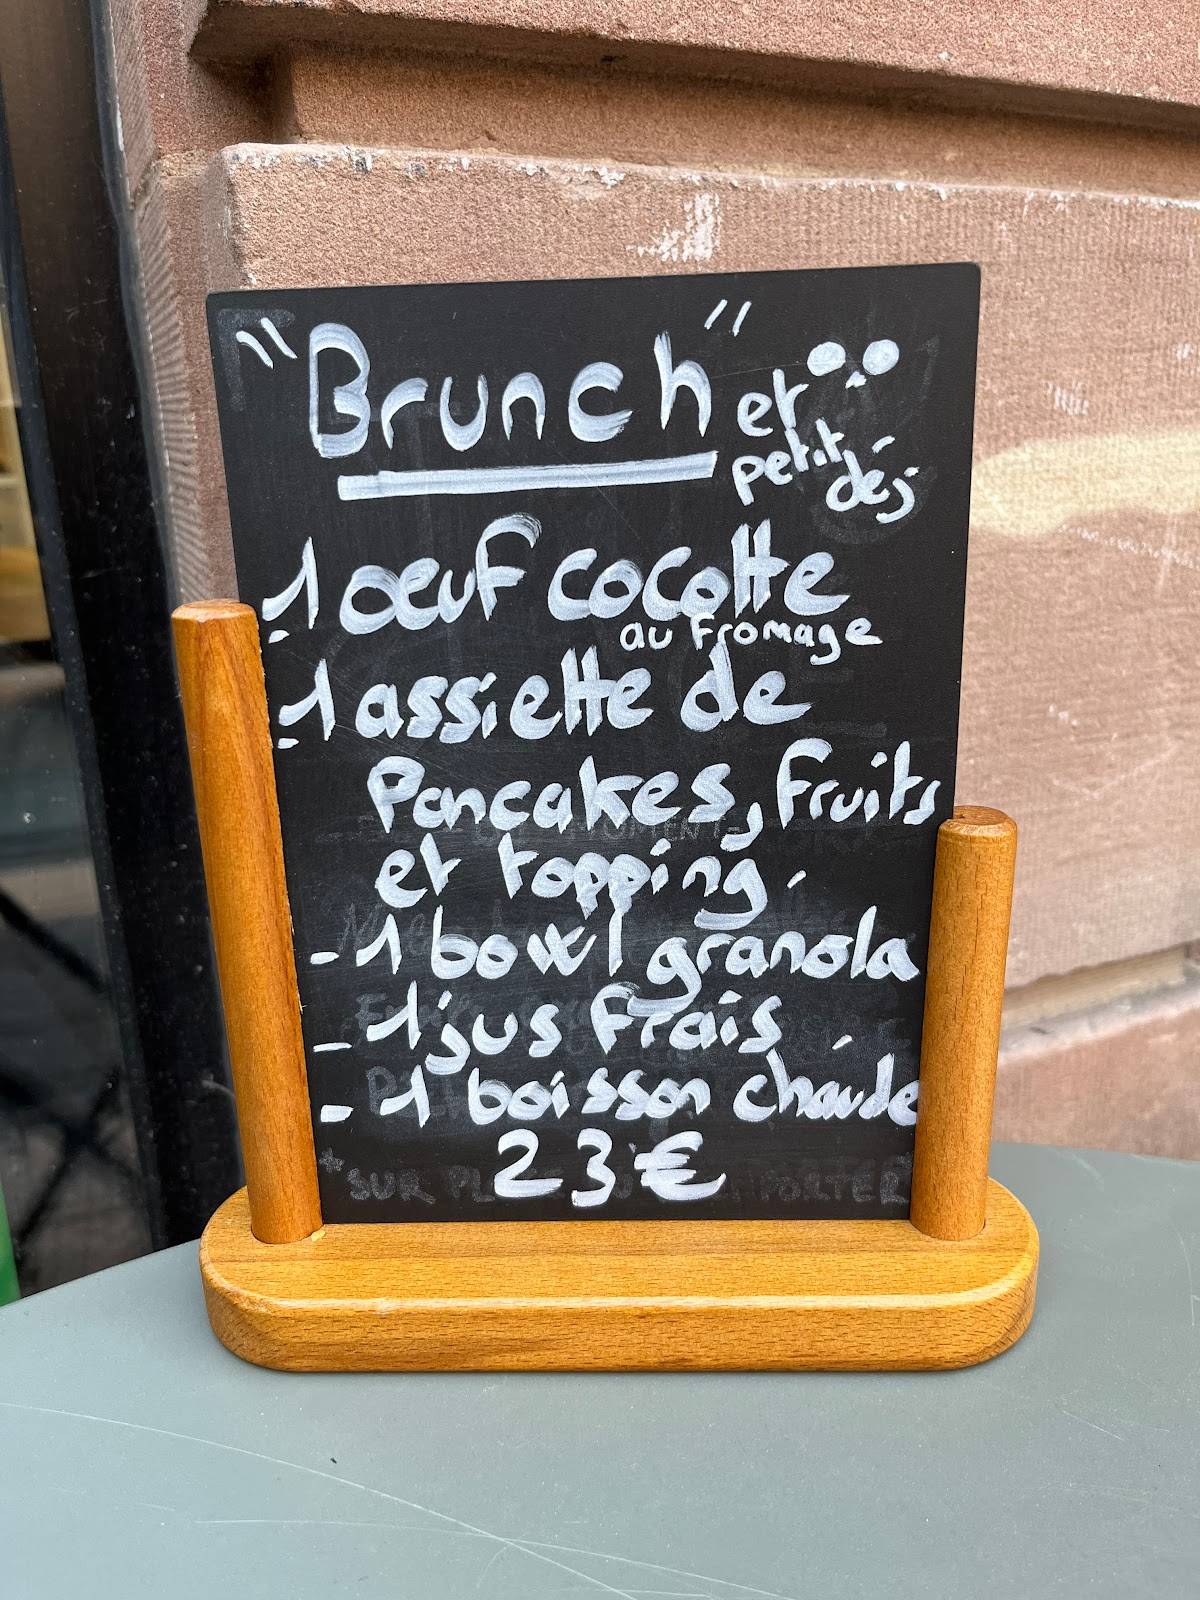 "Brunch" et
petit déj
- 1 oeuf cocotte
au fromage
- 1 assiette de
Pancakes, fruits
et topping.
- 1 bowl granola
- 1 jus frais
- 1 boisson chaude
23 €
*SUR PLACE EMPORTER*